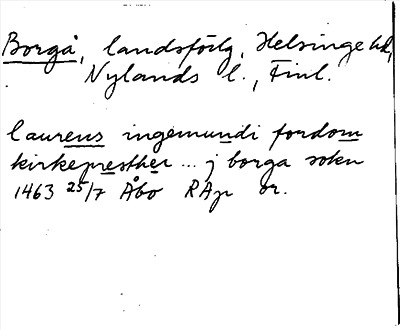 Borgå, landsförlg, Helsinge hd,
Nylands l., Finl.
laurens ingemundi fordom
kirkepresther ... j borga sokn
1463 25/7 Åbo RAp or.